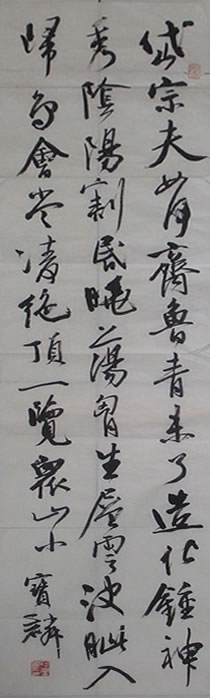 岱宗夫如何齊魯青未了造化鍾神
秀陰陽割昏曉蕩胸生層雲決眦入
歸鳥會當凌絕頂一覽眾山小
寶麟